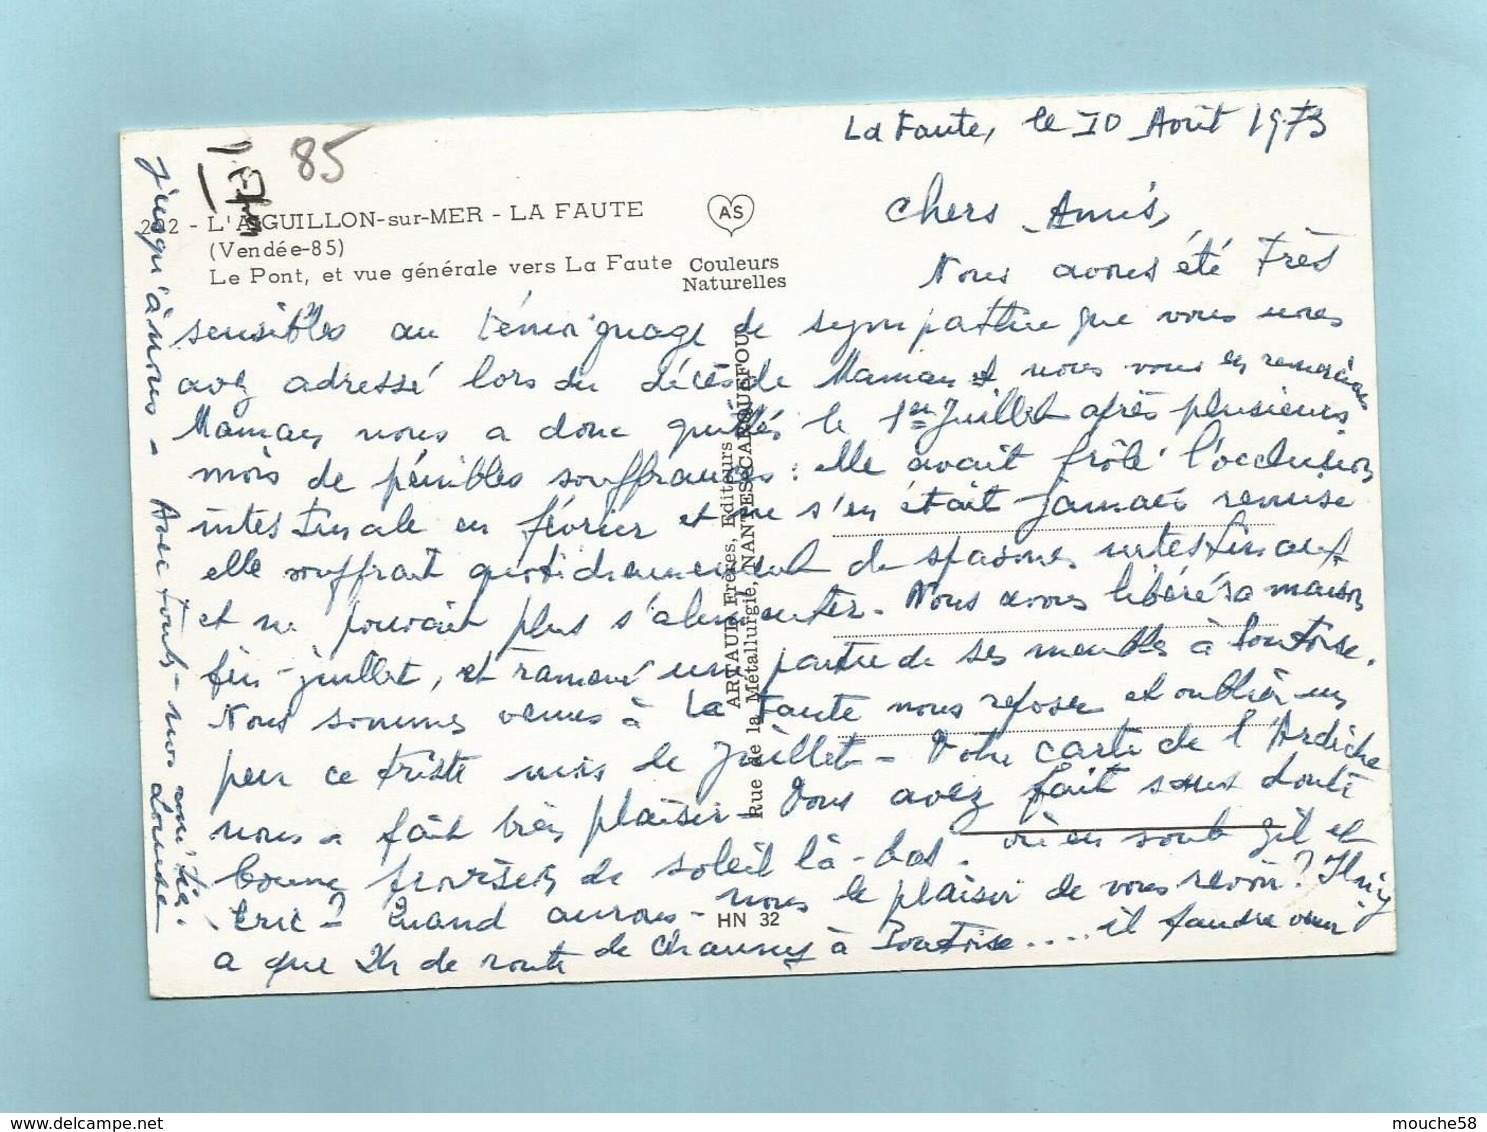 La Faute, le 10 Août 1973
85
202 - L'AIGUILLON-sur-MER - LA FAUTE
(Vendée-85)
Le Pont, et vue générale vers La Faute
AS
Couleurs
Naturelles
Chers Amis,
Nous avons été très
sensibles au témoignage de sympathie que vous nous
avez adressé lors du décès de Maman et nous vous en remercions
Maman nous a donc quittés le 1er Juillet après plusieurs
mois de pénibles souffrances : elle avait frôlé l'occlusion
intestinale en février et ne s'en était jamais remise
elle souffrait quotidiennement de spasmes intestinaux
et ne pouvait plus s'alimenter. Nous avons libéré sa maison
fin-juillet, et ramené une partie de ses meubles à Pontoise.
Nous sommes venus à La Faute nous reposer et oublier un
peu ce triste mois de Juillet - Votre carte de l'Ardèche
nous a fait très plaisir - Vous avez fait sans doute
bonne provision de soleil là-bas. Où en sont Gil et
Eric ? Quand aurons-nous le plaisir de vous revoir ? Il n'y
a que 2h de route de Chauny à Pontoise.... il faudra venir
jusqu'à nous - Avec toute notre amitié.
Louise
ARTAUD Frères, Editeurs
Rue de la Métallurgie, NANTES-CARQUEFOU
HN 32
mouche58